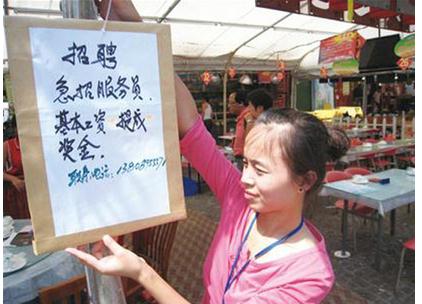 招聘
急招服务员.
基本工资+提成
奖金.
联系电话: